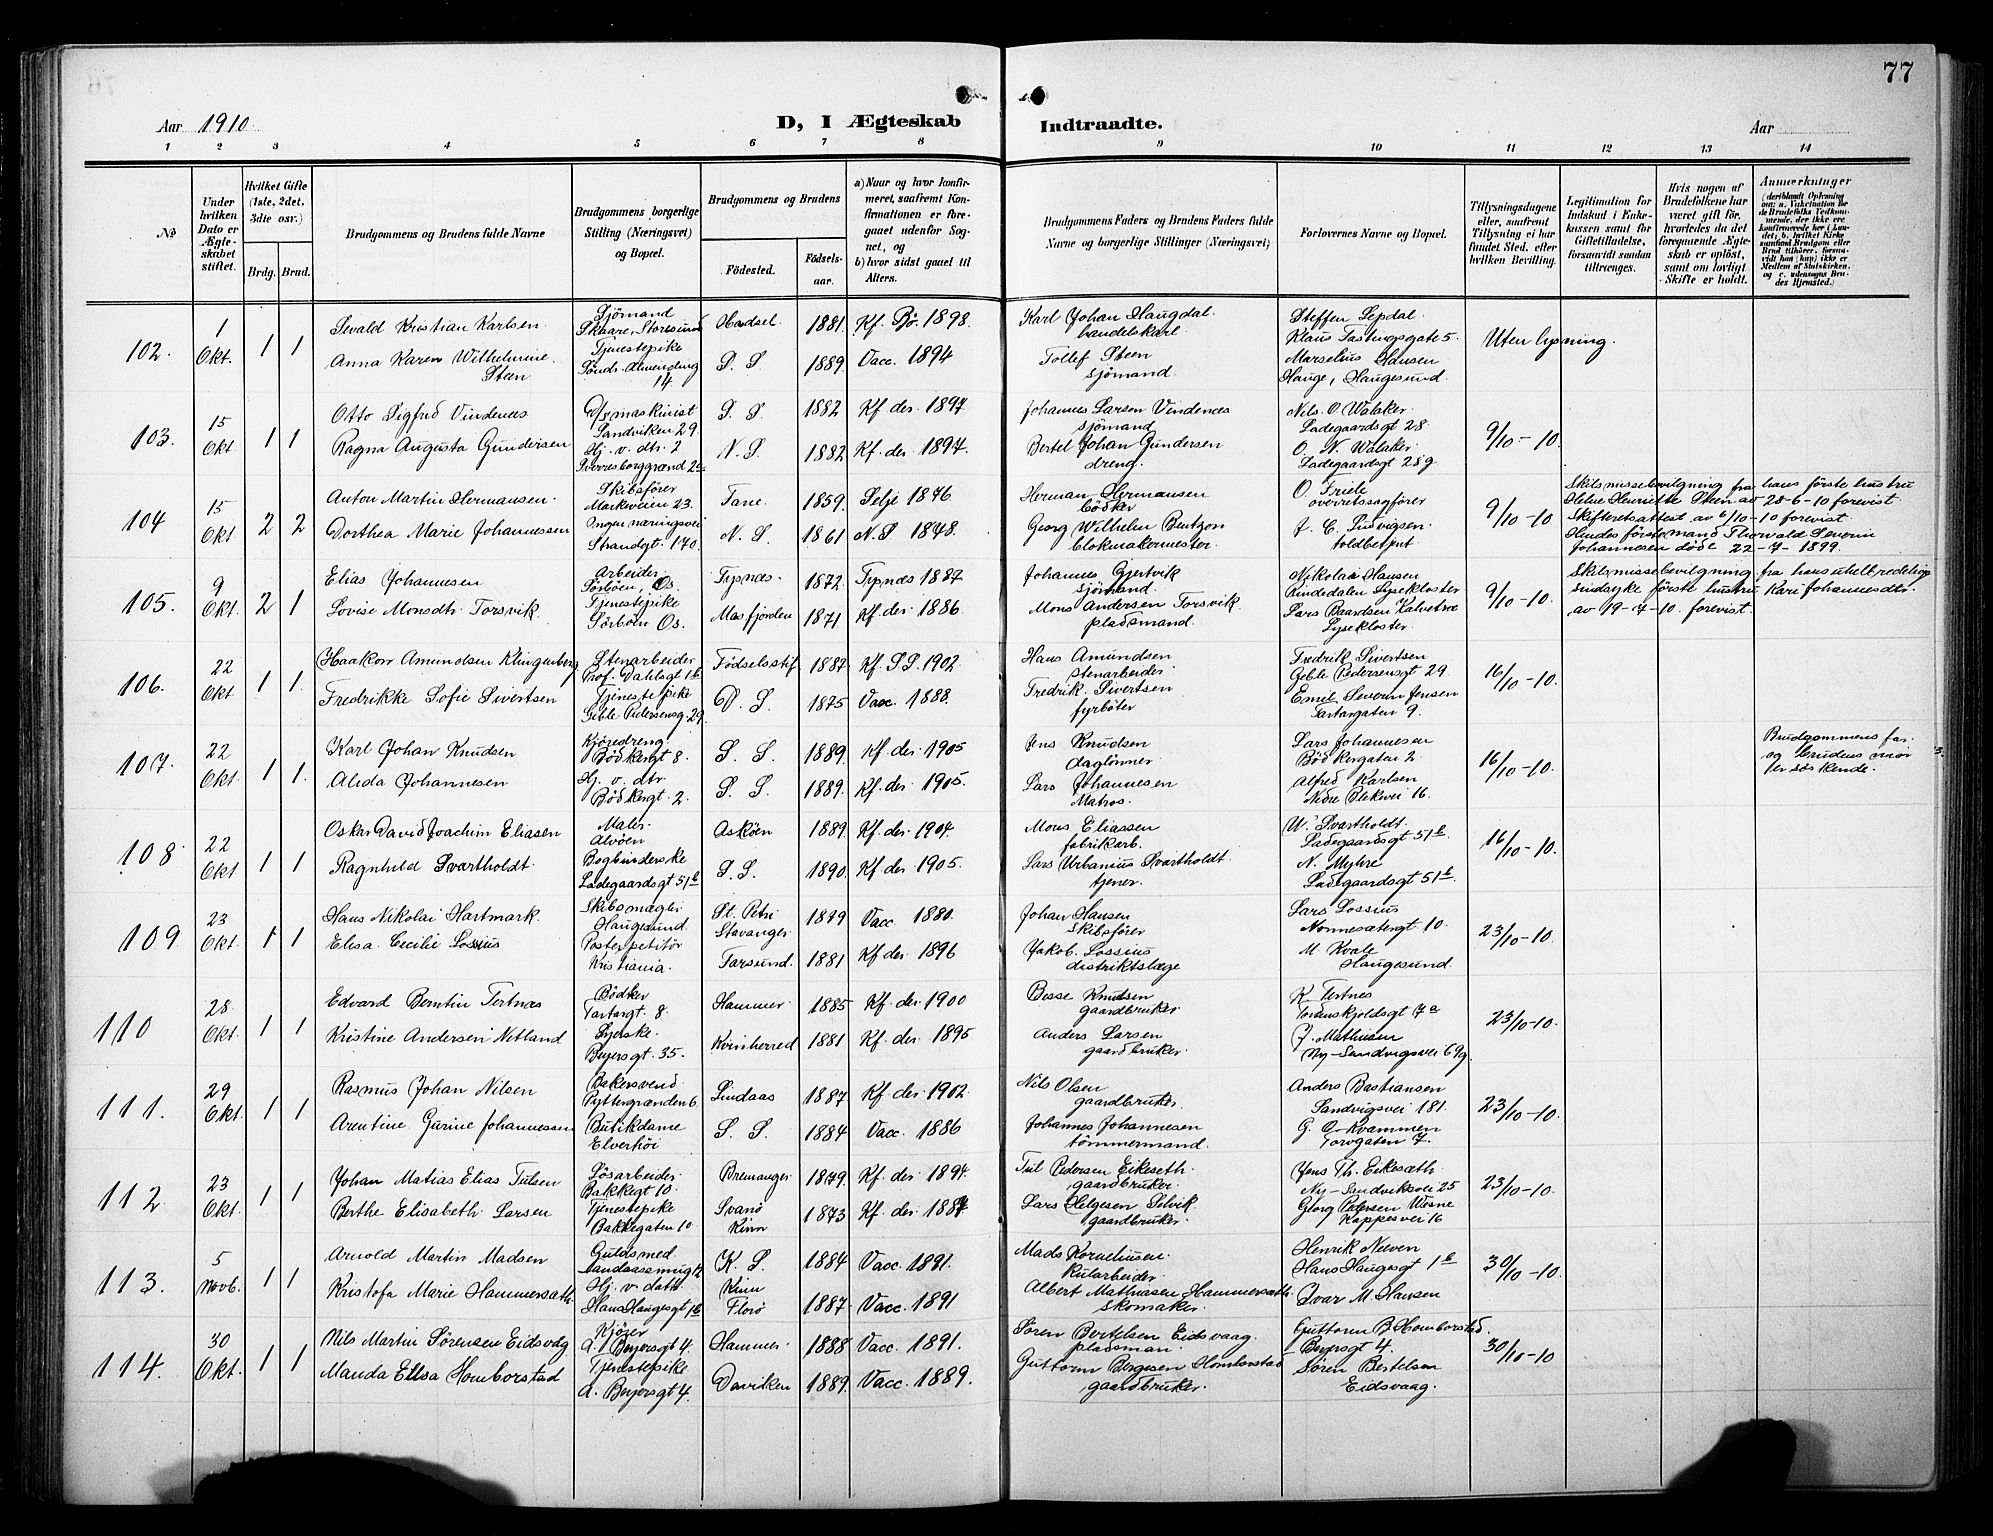 77
Aar 1910. D, I Ægteskab Indtraadte. Aar
1 2 3 4 5 6 7 8 9 10 11 12 13 14
№
Under hvilken Dato er Ægteskabet stiftet.
Hvilket Gifte (1ste, 2det, 3die osv.)
Brdg. Brud.
Brudgommens og Brudens fulde Navne
Brudgommens borgerlige Stilling (Næringsvei) og Bopæl.
Brudgommens og Brudens
Fødested. Fødselsaar.
a) Naar og hvor konfirmeret, saafremt Konfirmationen er foregaaet udenfor Sognet, og
b) hvor sidst gaaet til Alters.
Brudgommens Faders og Brudens Faders fulde Navne og borgerlige Stillinger (Næringsvei)
Forlovernes Navne og Bopæl.
Tillysningsdagene eller, saafremt Tillysning ei har fundet Sted, efter hvilken Bevilling.
Legitimation for Indskud i Enkekassen samt for Giftetilladelse, forsaavidt saadan tiltrænges.
Hvis nogen af Brudefolkene har været gift før, hvorledes da det foregaaende Ægteskab er opløst, samt om lovligt Skifte er holdt.
Anmærkninger
(deriblandt Oplysning om: a. Vakcination for de Brudefolks Vedkommende, der ikke ere konfirmerede her i Landet; b. hvilket Kirkesamfund Brudgom eller Brud tilhører, forsaavidt han (hun) ikke er Medlem af Statskirken, og c. udensogns Brudes Hjemsted.)
102. 1 Okt. 1 1
Sevald Kristian Karlsen. Sjömand Skaare, Storesund Hadsel. 1881. Kf. Bö. 1898. Karl Johan Haugdal handelskarl. Steffen Sepdal Klaus Fastingsgate 5. Uten lysning.
Anna Karen Wilhelmine Steen Tjenestepike Sönds. Almending 14. S. S. 1889. Vacc. 1894 Tollef Steen sjömand. Marselius Hansen Hauge, Haugesund.
103. 15 Okt. 1 1
Otto Sigfred Vindenes D/s maskinist Sandviken 29. S. S. 1882 Kf. der. 1897 Johannes Larsen Vindenes sjömand Nils O. Walaker Ladegaardsgt 28. 9/10 - 10.
Ragna Augusta Gundersen Hj. v. dtr. 2 Sverresborggrænd 2c N. S. 1882 Kf. der 1897. Bertel Johan Gundersen dreng. O. N. Walaker Ladegaardsgt 28g
104 15 Okt 2 2
Anton Martin Hermansen. Skibsfører Markeveien 23. Fane. 1859. Selje 1876 Herman Hermansen bödker O. Friele overretssagfører 9/10 - 10
Dorthea Marie Johannessen Ingen næringsvei Strandgt. 170. N. S. 1861 N. S 1878. Georg Wilhelm Bentzon blokmakermester. J. C. Ludvigsen toldbetjent
Skilsmissebevilgning fra hans förste hustru
Helene Henriette Steen av 28-6-10 forevist.
Skifteretsattest av 6/10-10 forevist.
Hendes förstemand Thorvald Severin
Johannesen döde 22-7-1899.
105. 9 Okt. 2 1
Elias Johannesen Arbeider. Sörböen, Os Tysnæs. 1872. Tysnæs 1887 Johannes Gjertvik sjömand. Nikolai Hansen Rindedalen Lysekloster 9/10 - 10.
Lovise Monsdtr. Torsvik. Tjenestepike Sörböen Os. Masfjorden 1871 Kf. der 1886. Mons Andersen Torsvik. pladsmand. Lars Baardsen Lysekloster.
Skilsmissebevilgning fra hans uhelbredelig
sindsyke förste hustru Kari Johannesdtr.
av 19-7-10. forevist.
106. 22 Okt 1 1.
Haakon Amundsen Klingenberg Stenarbeider Prof. Dahlsgt 1b Födselsstif 1887. Kf. S.S. 1902. Hans Amundsen Stenarbeider Fredrik Sivertsen Geble Pedersensgt 29 16/10 - 10.
Fredrikke Sofie Sivertsen Tjenestepike Geble Pedersensg. 29. D. S. 1875 Vacc 1888. Fredrik. Sivertsen fyrböter Emil Severin Jensen Tartargaten 9.
107. 22 Okt 1 1.
Karl Johan Knudsen Kjöredreng. Bödkergt 8. S. S. 1889. Kf. der. 1905 Jens Knudsen daglönner Lars Johannesen Bödkergaten 2. 16/10 - 10.
Alida Johannesen Hj. v. dtr Bödkergt. 2. S. S. 1889. Kf. der. 1905. Lars Johannesen Matros. Alfred Karlsen Nedre Blekevei 16.
Brudgommens far.
og brudens mor
er söskende.
108. 22 Okt 1 1
Oskar David Joachim Eliasen Maler. Alvöen Asköen 1889. Kf. der. 1904. Mons Eliassen fabrikarb. W. Svartholdt. Ladegaardsgt 51b. 16/10 - 10.
Ragnhild Svartholdt. Bogbinderske Ladegaardsgt 51b S. S. 1890. Kf der. 1905. Lars Urbanius Svartholdt tjener. N. Myhre Ladegaardsgt 51b.
109 23 Okt. 1 1
Hans Nikolai Hartmark. Skibsmægler Haugesund. St. Petri Stavanger 1879 Vacc 1880. Johan Hansen Skibsfører Lars Lossius Nonnesætergt 10. 23/10 - 10.
Elisa Cecilie Lossius Postexpeditör Kristiania. Farsund. 1881 Kf der. 1896 Yakob. Lossius distriktslæge M. Kvale Haugesund.
110 28. Okt. 1 1
Edvard Berntin Tertnæs Bödker Tartargt. 8. Hammer. 1885 Kf. der. 1900 Besse Knutsen gaardbruker. K. Tertnes Tordenskjoldsgt 7a 23/10-10.
Kristine Andersen Netland Syerske. Beyersgt. 35. Kvinherred 1881. Kf. der. 1895 Anders Larsen gaardbruker. J. Mathiesen Ny-Sandvigsvei 69g.
111. 29 Okt. 1 1
Rasmus Johan Nilsen Bakersvend Pyttergrænden 6. Lindaas 1887. Kf. der. 1902. Nils Olsen gaardbruker. Anders Bastiansen Sandvigsvei 181. 23/10 - 10.
Arentine Gurine Johannessen Butikdame Elverhöi S. S. 1884 Vacc. 1886 Johannes Johannesen tömmermand. G. O. Kvammen Torvgaten 7.
112. 23 Okt. 1 1
Johan Matias Elias Tulsen Lösarbeider Bakkegt 10. Bremanger 1879. Kf. der. 1894. Tul Pedersen Eikeseth. gaardbruker. Jens Th. Eikesæth. Ny-Sandviksvei 25 23/10-10.
Berthe Elisabeth. Larsen Tjenestepike Bakkegaten 10 Svanö Kinn 1873 Kf. der. 1887. Lars Helgesen Selvik gaardbruker. Georg Petersen Kappesvei 16
113. 5 Novb. 1 1
Arnold Martin Madsen Guldsmed. K. S. 1884 Vacc. 1891. Mads Korneliusen. Kularbeider. Henrik Neeven Hans Haugesgt 1b 30/10 - 10.
Kristofa Marie Hammersæth. Hj. v. datter Hans Haugesgt 1b Kinn Florö 1887. Vacc. 1891 Albert Mathiasen Hammersæth. skomaker. Ivar M. Hansen
114. 30 Okt. 1 1
Nils Martin Sørensen Eidsvaag Kjører A. Beyersgt 4. Hammer. 1888 Vacc. 1891. Sören Bertelsen Eidsvaag. pladsman. Guttorm B. Homborstad. Beyersgt 4. 30/10 - 10
Manda Elisa Homborstad Tjenestepike A. Beyersgt 4. Daviken 1889. Vacc. 1889. Guttorm Børgesen Homborstad gaardbruker. Søren Bertelsen Eidsvaag.